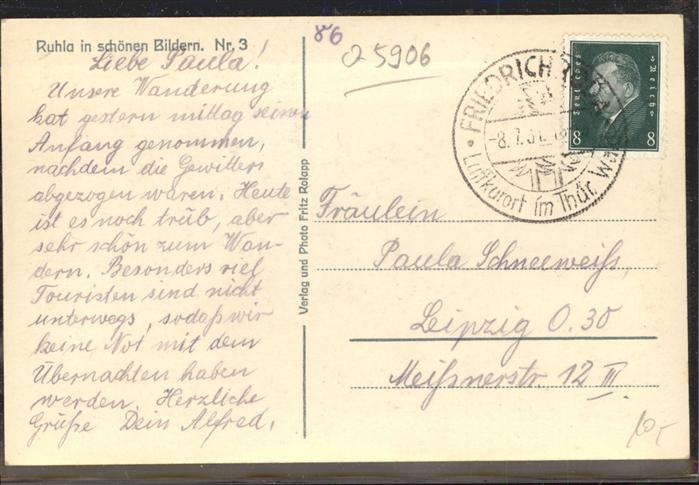 Ruhla in schönen Bildern. Nr. 3
Liebe Paula!
Unsere Wanderung
hat gestern mittag seinen
Anfang genommen,
nachdem die Gewitters
abgezogen waren. Heute
ist es noch trüb, aber
sehr schön zum Wan-
dern. Besonders viel
Touristen sind nicht
unterwegs, sodaß wir
keine Not mit dem
Übernachten haben
werden. Herzliche
Grüße Dein Alfred.
Verlag und Photo Fritz Rolapp
86
25906
FRIEDRICH
-8.7.31.
Luftkurort im Thür. W
Deutsches Reich
8 8
Fräulein
Paula Schneeweiß,
Leipzig O.30
Meißnerstr. 12 III.
10,-